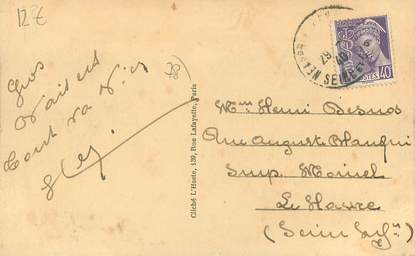 12€
Gros
Baisers
Tout va bien
78)
Cliché L'Hoste, 139, Rue Lafayette, Paris
POSTES 40
Mme Henri
Rue Auguste Blanqui
Imp.
Le Havre
(Seine Infre)